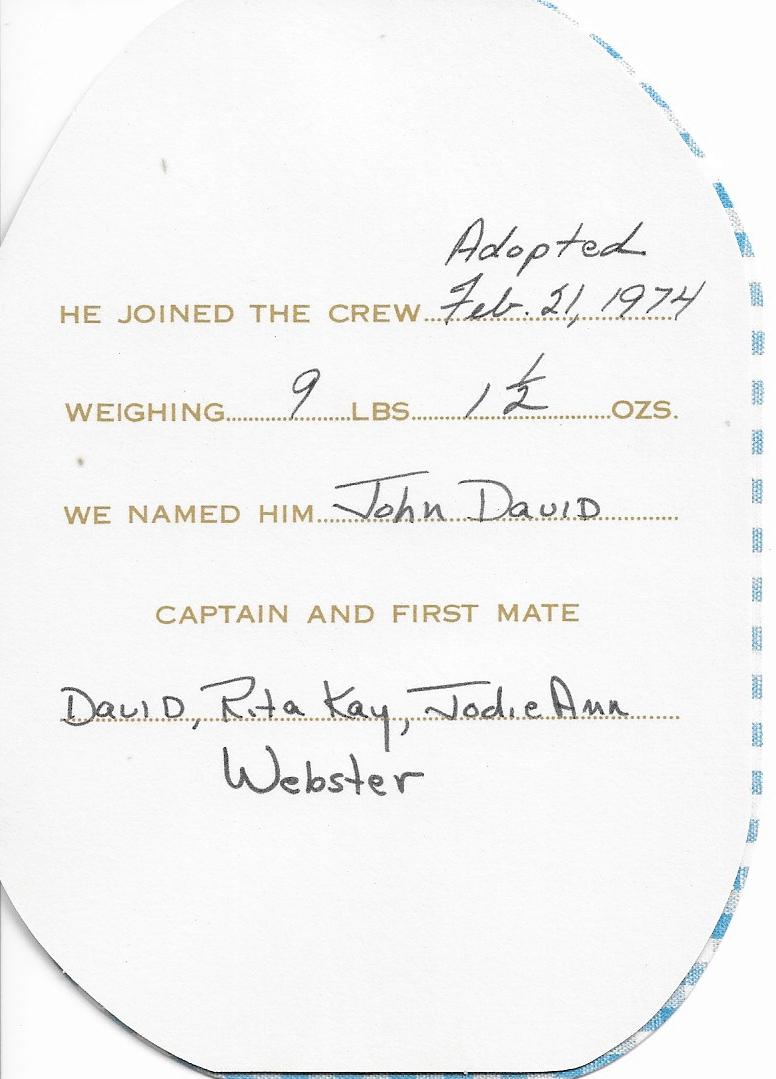 Adopted
HE JOINED THE CREW Feb. 21, 1974
WEIGHING 9 LBS 1 1/2 OZS.
WE NAMED HIM John David
CAPTAIN AND FIRST MATE
David, Rita Kay, Jodie Ann
Webster